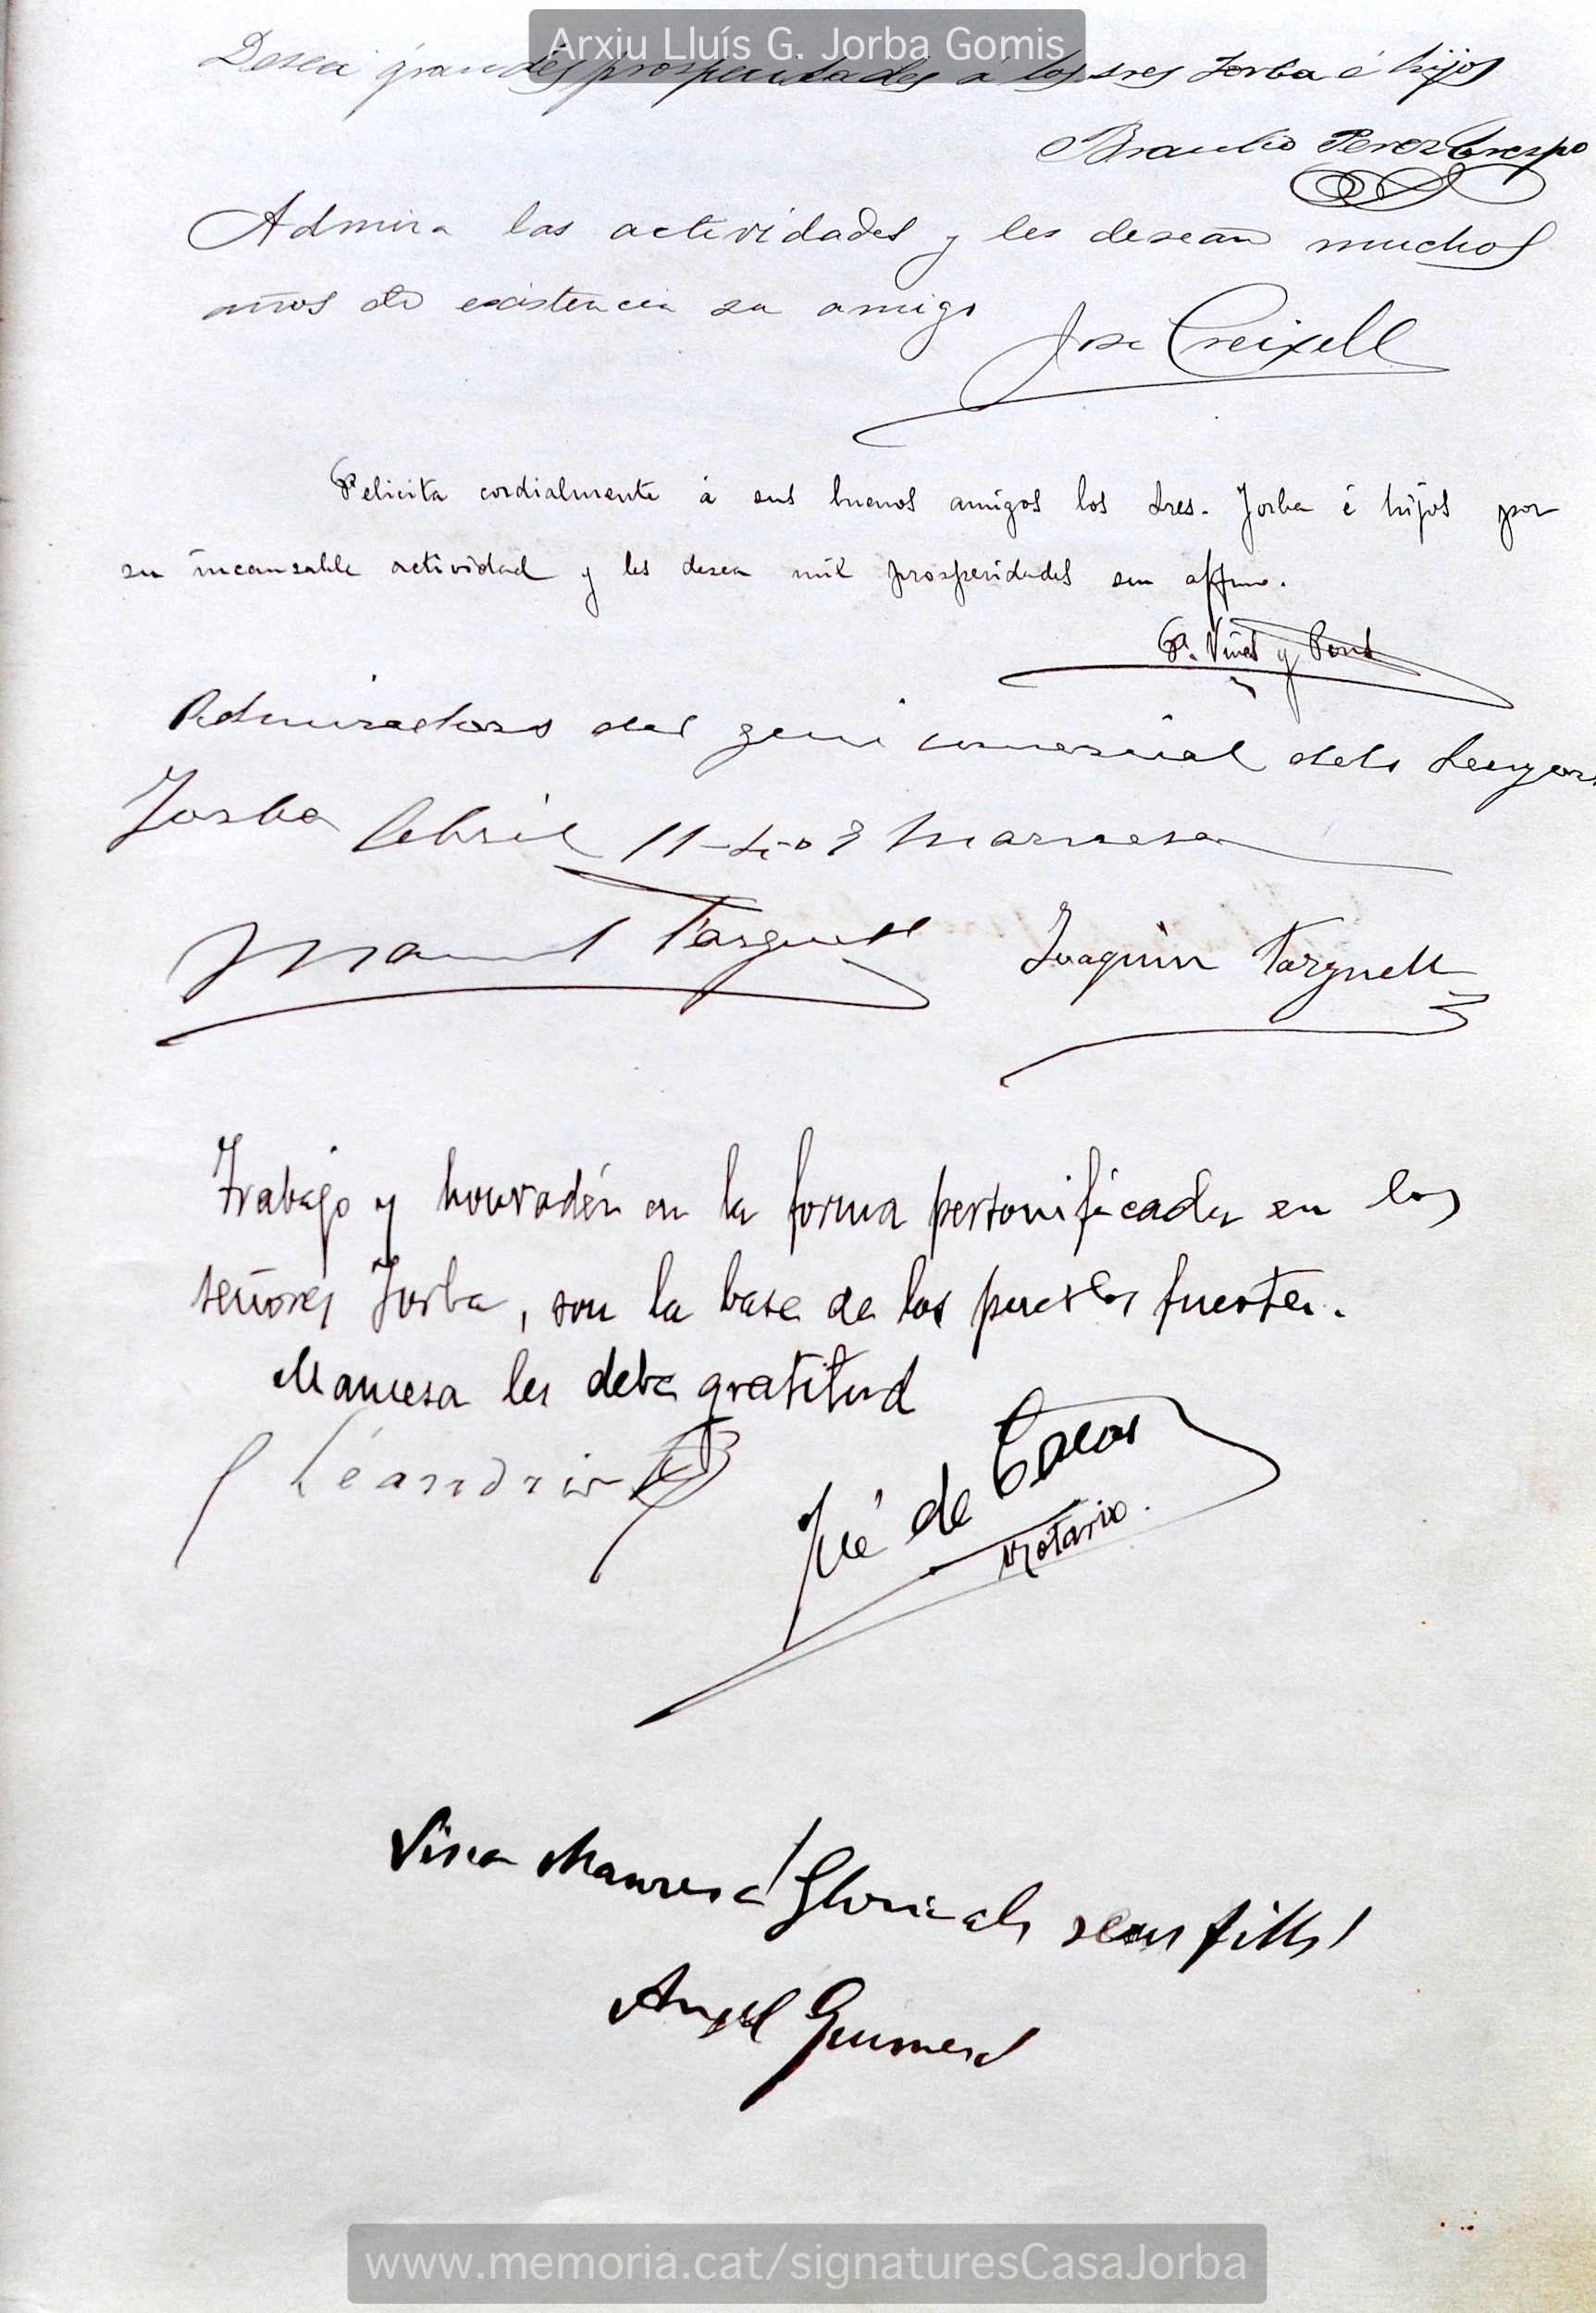 Arxiu Lluís G. Jorba Gomis
Desea grandes prosperidades á los sres Jorba é hijos
Braulio Perez Crespo
Admira las actividades y les desean muchos
años de existencia su amigo
Jose Creixell
Felicita cordialmente á sus buenos amigos los Sres. Jorba é hijos por
su incansable actividad y les desea mil prosperidades su affmo.
P. Viñes y Pons
Admiradors del geni comercial dels Senyors
Jorba Abril 11-4-08 Manresa
Manuel Targuell Joaquin Targuell
Trabajo y honradéz en la forma personificada en los
señores Jorba, son la base de los pueblos fuertes.
Manresa les debe gratitud
Leandrio
José de
Notario.
Visca Manresa! Gloria als seus fills!
Angel Guimerá
www.memoria.cat/signaturesCasaJorba